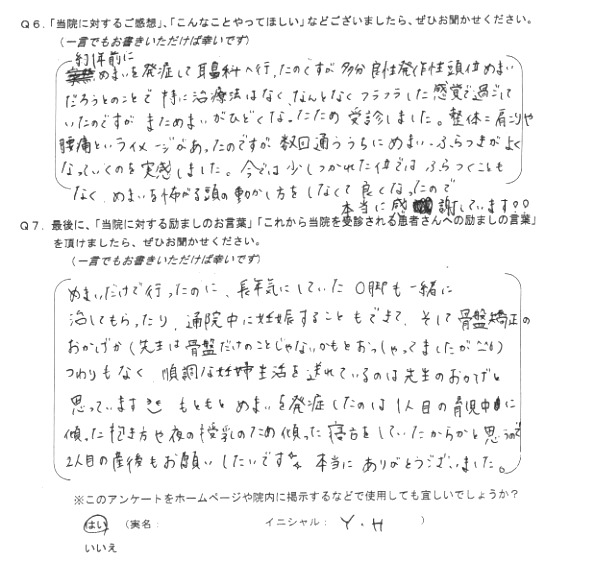 Q6.「当院に対するご感想」、「こんなことやってほしい」などございましたら、ぜひお聞かせください。
(一言でもお書きいただけば幸いです)
約1年前に
めまいを発症して耳鼻科へ行ったのですが多分良性発作性頭位めまい
だろうとのことで特に治療法はなく、なんとなくフラフラした感覚で過ごして
いたのですがまためまいがひどくなったため受診しました。整体=肩こりや
腰痛というイメージがあったのですが数回通ううちにめまい・ふらつきがよく
なっていくのを実感しました。今では少しつかれた位ではふらつくことも
なく、めまいを怖がる頭の動かし方をしなくて良くなったので
本当に感謝しています
Q7.最後に、「当院に対する励ましのお言葉」「これから当院を受診される患者さんへの励ましの言葉」
を頂けましたら、ぜひお聞かせください。
(一言でもお書きいただけば幸いです)
めまいだけで行ったのに、長年気にしていたO脚も一緒に
治してもらったり、通院中に妊娠することもできて、そして骨盤矯正の
おかげか(先生は骨盤だけのことじゃないかもとおっしゃってましたが^^)
つわりもなく、順調な妊婦生活を送れているのは先生のおかげと
思っています もともとめまいを発症したのは1人目の育児中に
傾った抱き方や夜の授乳のため傾った寝方をしていたからかと思うので
2人目の産後もお願いしたいです 本当にありがとうございました。
※このアンケートをホームページや院内に掲示するなどで使用しても宜しいでしょうか?
はい (実名: イニシャル: Y・H )
いいえ